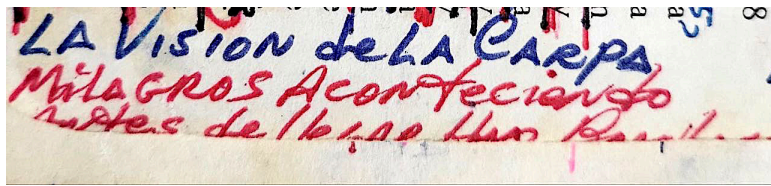 LA VISION de LA CARPA
MilAGROS AConTeciendo
Antes de llegar